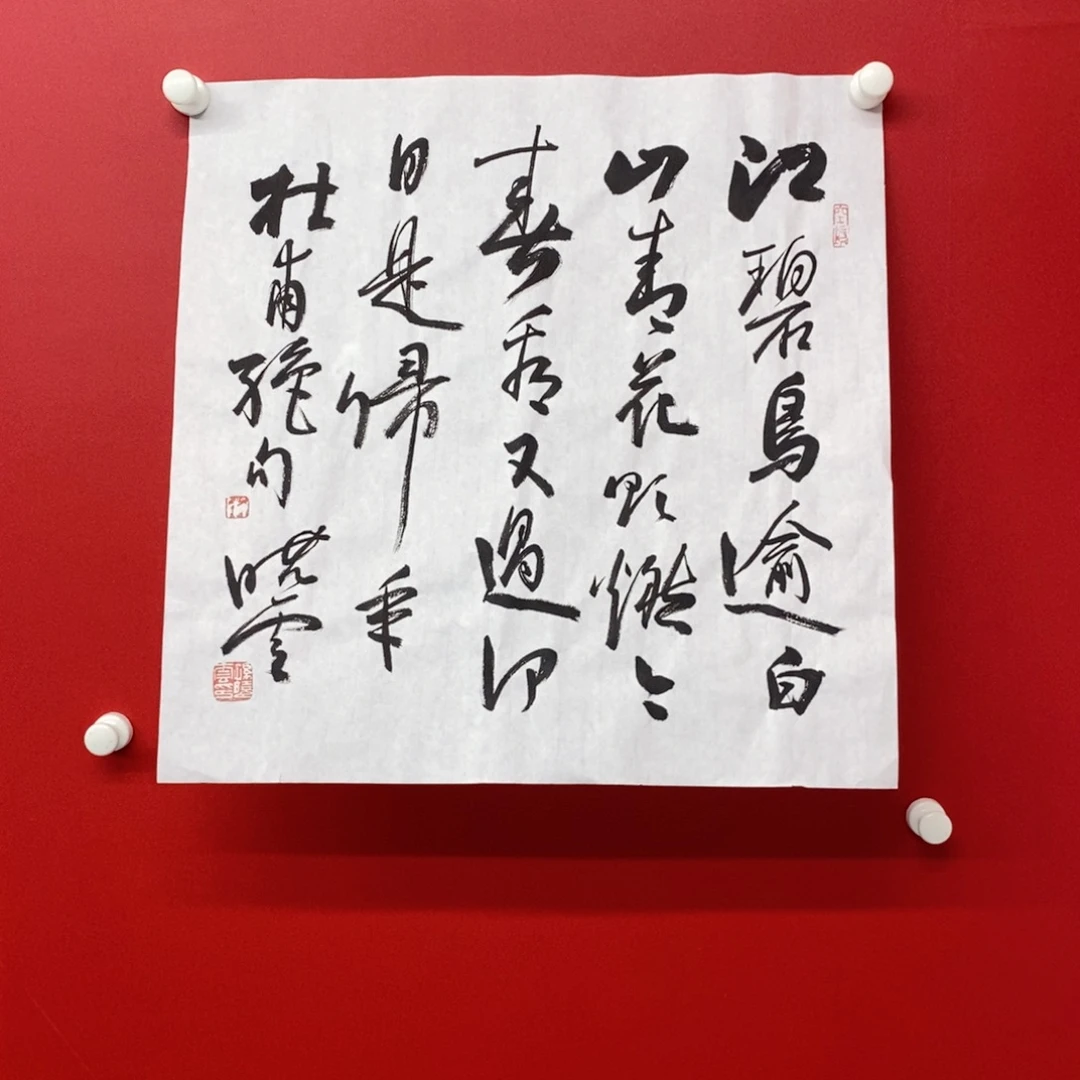 江碧鳥逾白
山青花欲燃今
春看又過何
日是歸年
杜甫絕句 曉雲